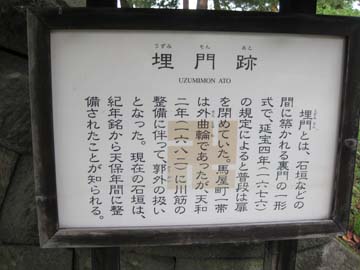 うずみ もん あと
埋門跡
UZUMIMON ATO
埋門とは、石垣などの
間に築かれる裏門の一形
式で、延宝四年(一六七六)
の規定によると普段は扉
を閉めていた。馬屋町一帯
は外曲輪であったが、天和
二年(一六八二)に川筋の
整備に伴って、郭外の扱い
となった。現在の石垣は、
紀年銘から天保年間に整
備されたことが知られる。